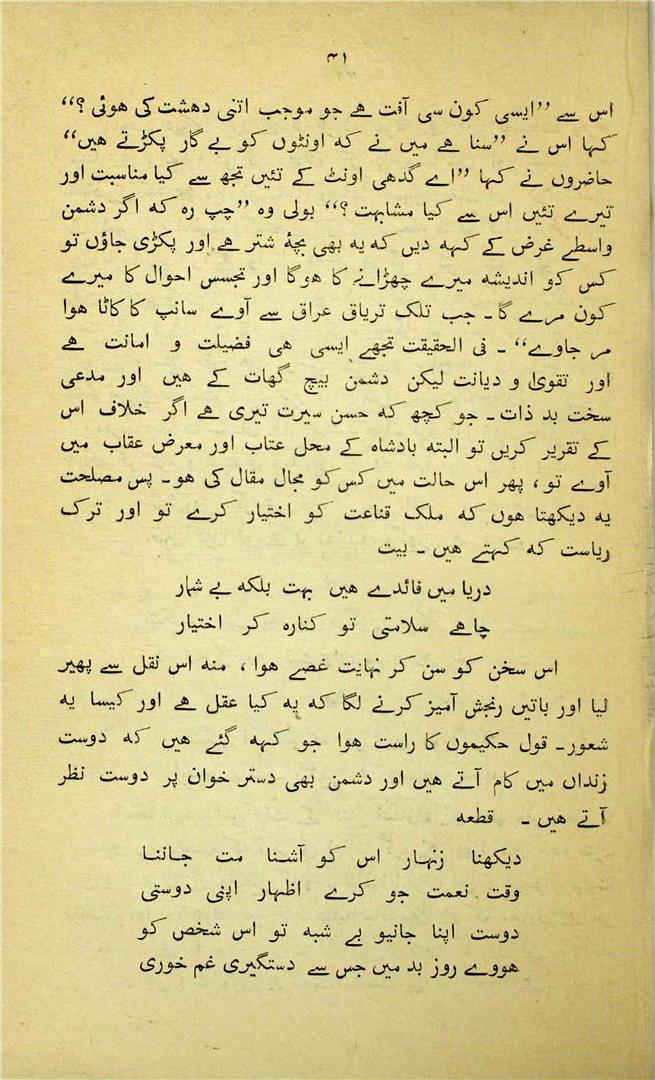 ۴۱
اس سے ”ایسی کون سی آفت ہے جو موجب اتنی دہشت کی ہوئی ؟“
کہا اس نے ”سنا ہے میں نے کہ اونٹوں کو بے گار پکڑتے ہیں“
حاضروں نے کہا ”اے گدھی اونٹ کے تئیں تجھ سے کیا مناسبت اور
تیرے تئیں اس سے کیا مشابہت ؟“ بولی وہ ”چپ رہ کہ اگر دشمن
واسطے غرض کے کہہ دیں کہ یہ بھی بچۂ شتر ہے اور پکڑی جاؤں تو
کس کو اندیشہ میرے چھڑانے کا ہوگا اور تجسس احوال کا میرے
کون مرے گا ۔ جب تلک تریاق عراق سے آوے سانپ کا کاٹا ہوا
مر جاوے“ ۔ فی الحقیقت تجھے ایسی ہی فضیلت و امانت ہے
اور تقویٰ و دیانت لیکن دشمن بیچ گھات کے ہیں اور مدعی
سخت بد ذات ۔ جو کچھ کہ حسن سیرت تیری ہے اگر خلاف اس
کے تقریر کریں تو البتہ بادشاہ کے محل عتاب اور معرض عقاب میں
آوے تو ، پھر اس حالت میں کس کو مجال مقال کی ہو ۔ پس مصلحت
یہ دیکھتا ہوں کہ ملک قناعت کو اختیار کرے تو اور ترک
ریاست کہ کہتے ہیں ۔ بیت
دریا میں فائدے ہیں بہت بلکہ بے شمار
چاہے سلامتی تو کنارہ کر اختیار
اس سخن کو سن کر نہایت غصے ہوا ، منہ اس نقل سے پھیر
لیا اور باتیں رنجش آمیز کرنے لگا کہ یہ کیا عقل ہے اور کیسا یہ
شعور ۔ قول حکیموں کا راست ہوا جو کہہ گئے ہیں کہ دوست
زنداں میں کام آتے ہیں اور دشمن بھی دستر خوان پر دوست نظر
آتے ہیں ۔ قطعہ
دیکھنا زنہار اس کو آشنا مت جاننا
وقت نعمت جو کرے اظہار اپنی دوستی
دوست اپنا جانیو بے شبہ تو اس شخص کو
ہووے روز بد میں جس سے دستگیری غم خوری